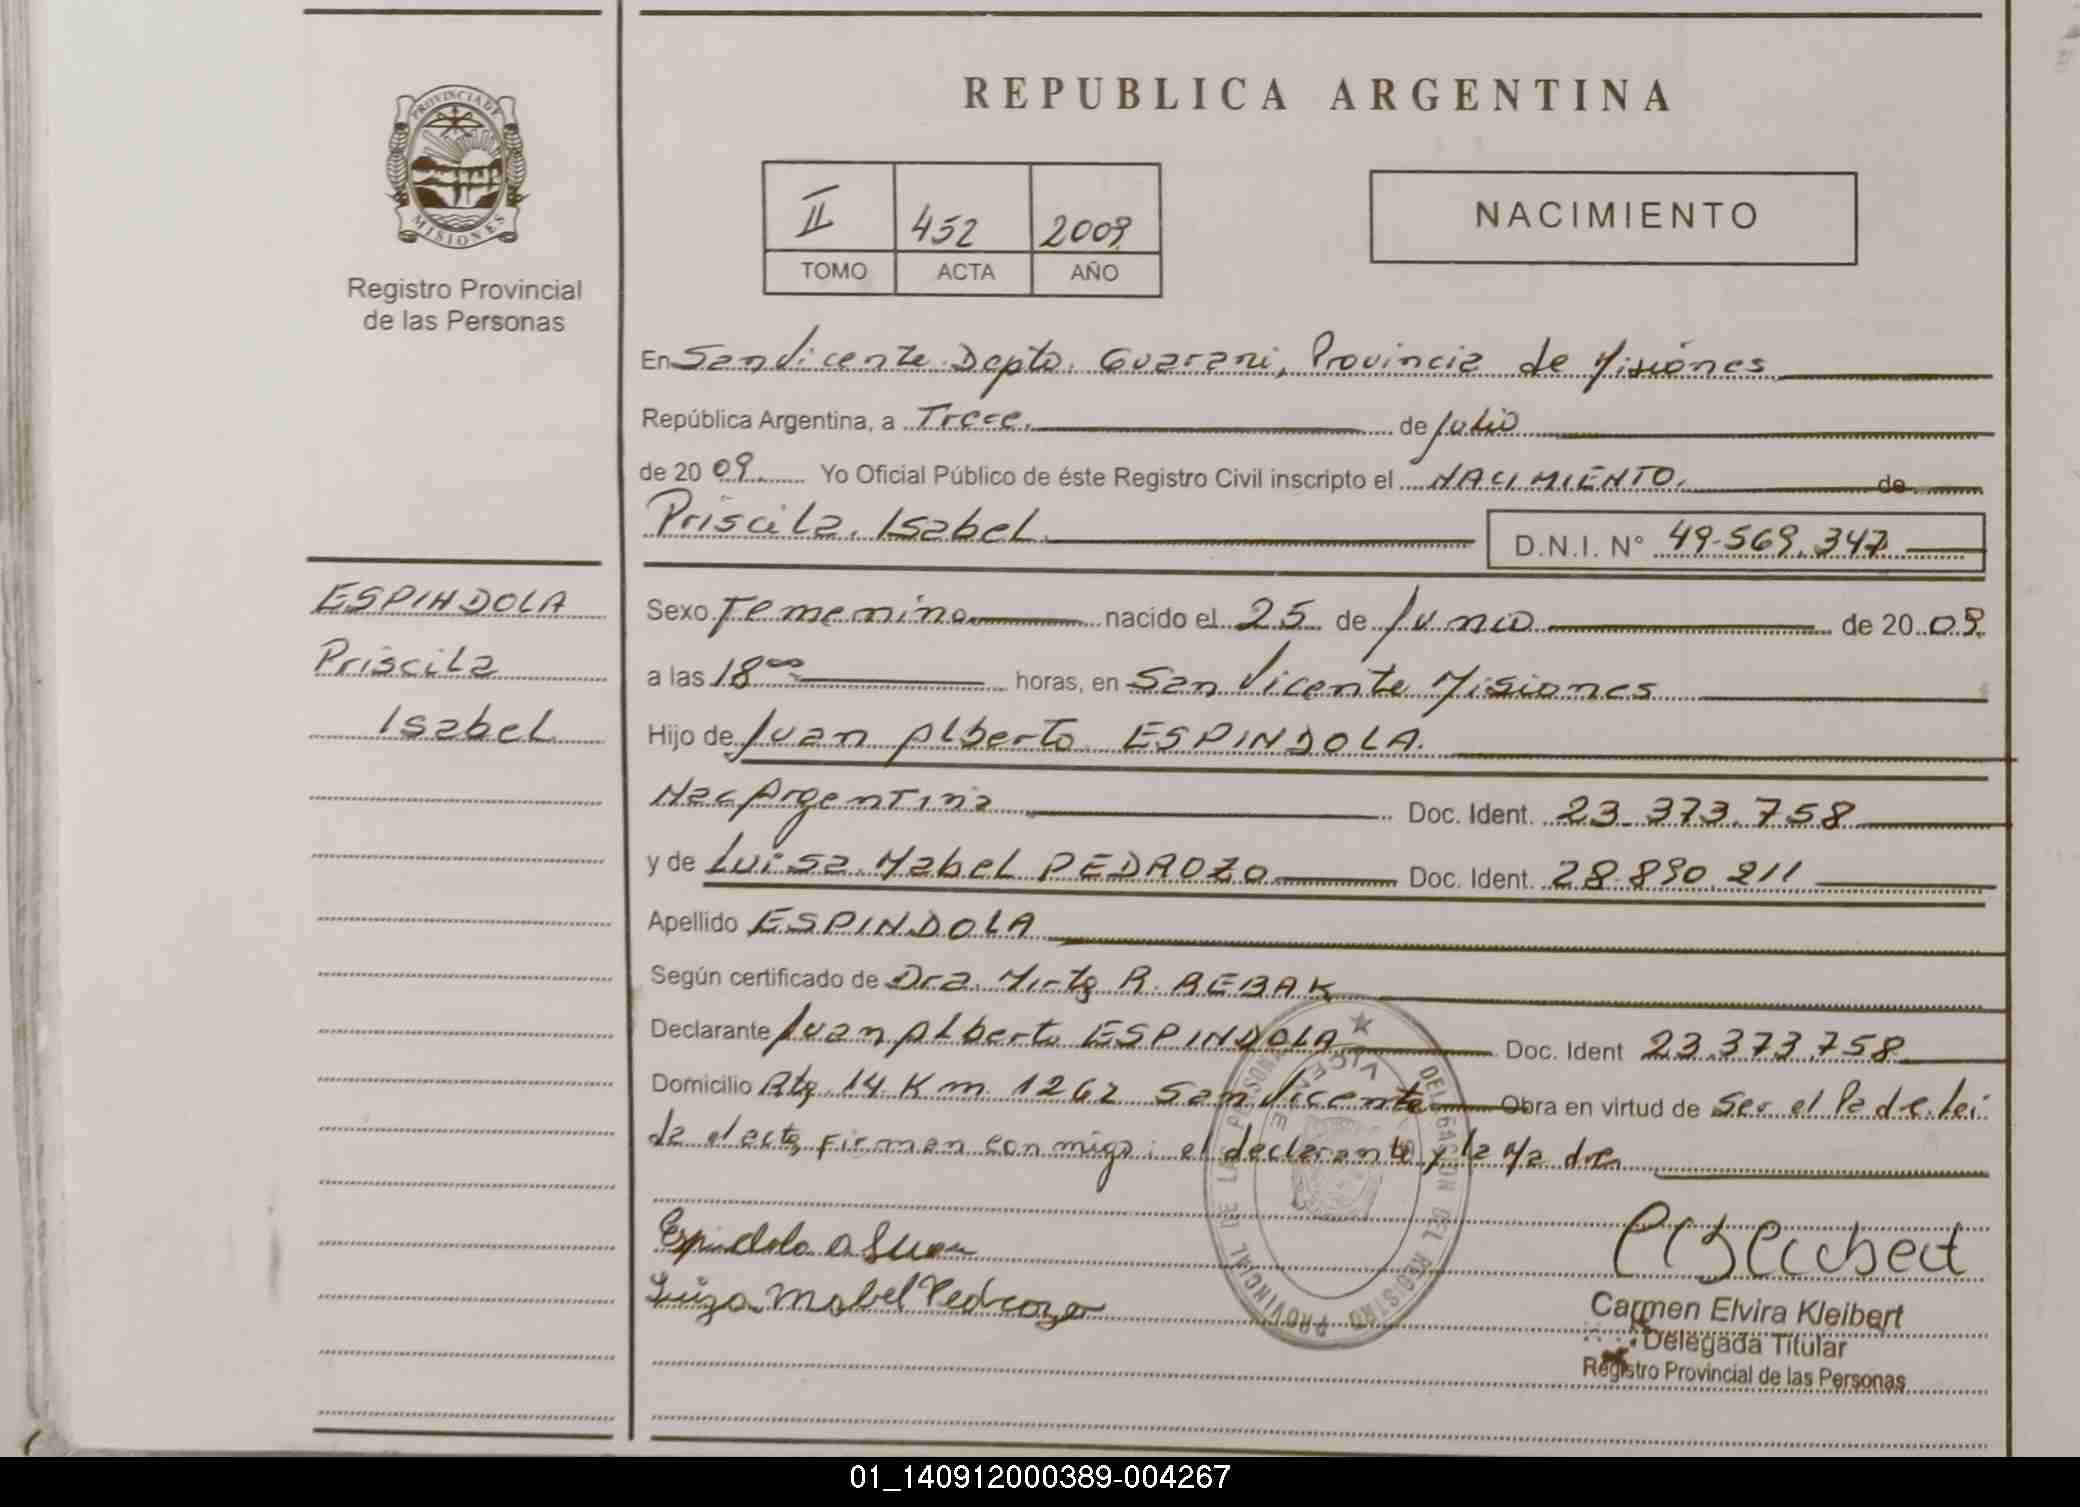 REPUBLICA ARGENTINA
PROVINCIA DE MISIONES
Registro Provincial
de las Personas
II 452 2009
TOMO ACTA AÑO
NACIMIENTO
En San Vicente Depto. Guarani, Provincia de Misiones
República Argentina, a Trece de Julio
de 2009 Yo Oficial Público de éste Registro Civil inscripto el NACIMIENTO. de
Priscila Isabel D.N.I. N° 49.569.347
ESPINDOLA
Priscila
Isabel
Sexo Femenino nacido el 25 de Junio de 2009
a las 18 00 horas, en San Vicente Misiones
Hijo de Juan Alberto ESPINDOLA.
Nac Argentina Doc. Ident. 23.373.758
y de Luisa Mabel PEDROZO Doc. Ident. 28.890.211
Apellido ESPINDOLA
Según certificado de Dra. Mirta R. REBAK
Declarante Juan Alberto ESPINDOLA Doc. Ident 23.373.758
Domicilio Rta 14 Km 1262 San Vicente Obra en virtud de Ser el Padre. Lei
da el acta, Firman conmigo: el declarante y la Madre
Espindola A Juan
Luiza Mabel Pedrozo
DELEGACION DEL REGISTRO PROVINCIAL DE LAS PERSONAS
Carmen Elvira Kleibert
Delegada Titular
Registro Provincial de las Personas
01_140912000389-004267